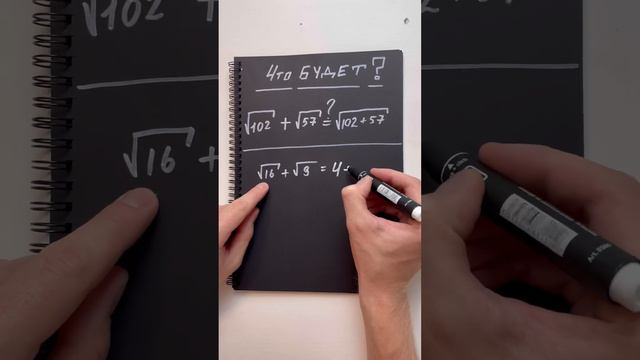 Что БУДЕТ?
√102 + √57 ≟ √102+57
√16 + √9 = 4+